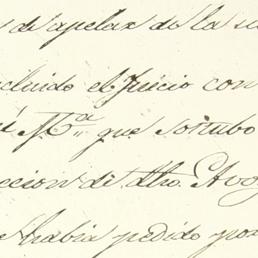 de apelar de la su
cluido el Juicio con
Mª que sostubo
eccion di dho. Abog
habia pedido por